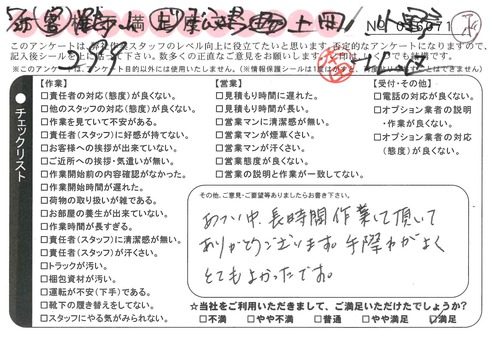 このアンケートは、弊社作業スタッフのレベル向上に役立てたいと思います。否定的なアンケートになりますので、
記入後シールを
※このアンケートは、アンケート目的以外には使用いたしません。
チェックリスト
【作業】
□責任者の対応(態度)が良くない。
□他のスタッフの対応(態度)が良くない。
□作業を見ていて不安がある。
□責任者(スタッフ)に好感が持てない。
□お客様への挨拶が出来ていない。
□ご近所への挨拶・気遣いが無い。
□作業開始前の内容確認がなかった。
□作業開始時間が遅れた。
□荷物の取り扱いが雑である。
□お部屋の養生が出来ていない。
□作業時間が長すぎる。
□責任者(スタッフ)に清潔感が無い。
□責任者(スタッフ)が汗くさい。
□トラックが汚い。
□梱包資材が汚い。
□運転が不安(下手)である。
□靴下の履き替えをしてない。
□スタッフにやる気がみられない。
【営業】
□見積もり時間に遅れた。
□見積もり時間が長い。
□営業マンに清潔感が無い。
□営業マンが煙草くさい。
□営業マンが汗くさい。
□営業態度が良くない。
□営業の説明と作業が一致してない。
【受付・その他】
□電話の対応が良くない。
□オプション業者の説明
・作業が良くない。
□オプション業者の対応
(態度)が良くない。
その他、ご意見・ご要望等ありましたらお書き下さい。
中、長時間作業して頂いて
ありがとうございます。手際れがよく
とてもよかったです。
☆当社をご利用いただきまして、ご満足いただけたでしょうか?
□不満 □やや不満 □普通 □やや満足 ☑満足